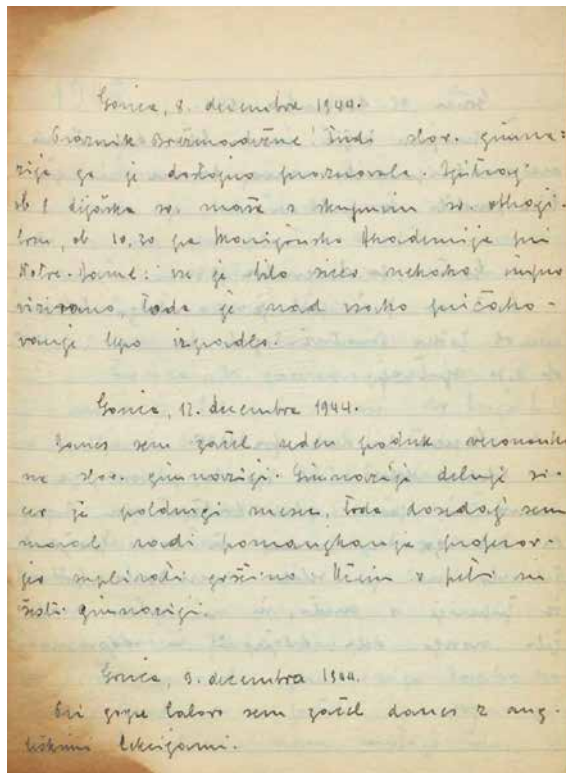 Gorica, 8. decembra 1944.
Praznik Brezmadežne! Tudi slov. gimna-
zija ga je dostojno praznovala. Zjutraj
ob 8 dijaška sv. maša s skupnim sv. obhaji-
lom, ob 10,30 pa Marijanska Akademija pri
Notre-Dame: vse je bilo sicer nekoko impro
vizirano, toda je nad vsako pričako-
vanje lepo izpadlo.
Gorica, 12. decembra 1944.
Danes sem začel reden podūk
na slov. gimnaziji. Gimnazija deluje si-
cer že poldrugi mesec, toda dosedaj sem
moral radi pomanjkanja profesor-
jev suplirati grščino. Učim v peti in
šesti gimnaziji.
Gorica, 9. decembra 1944.
Pri gospe Lalovi sem začel danes z ang-
leškimi lekcijami.